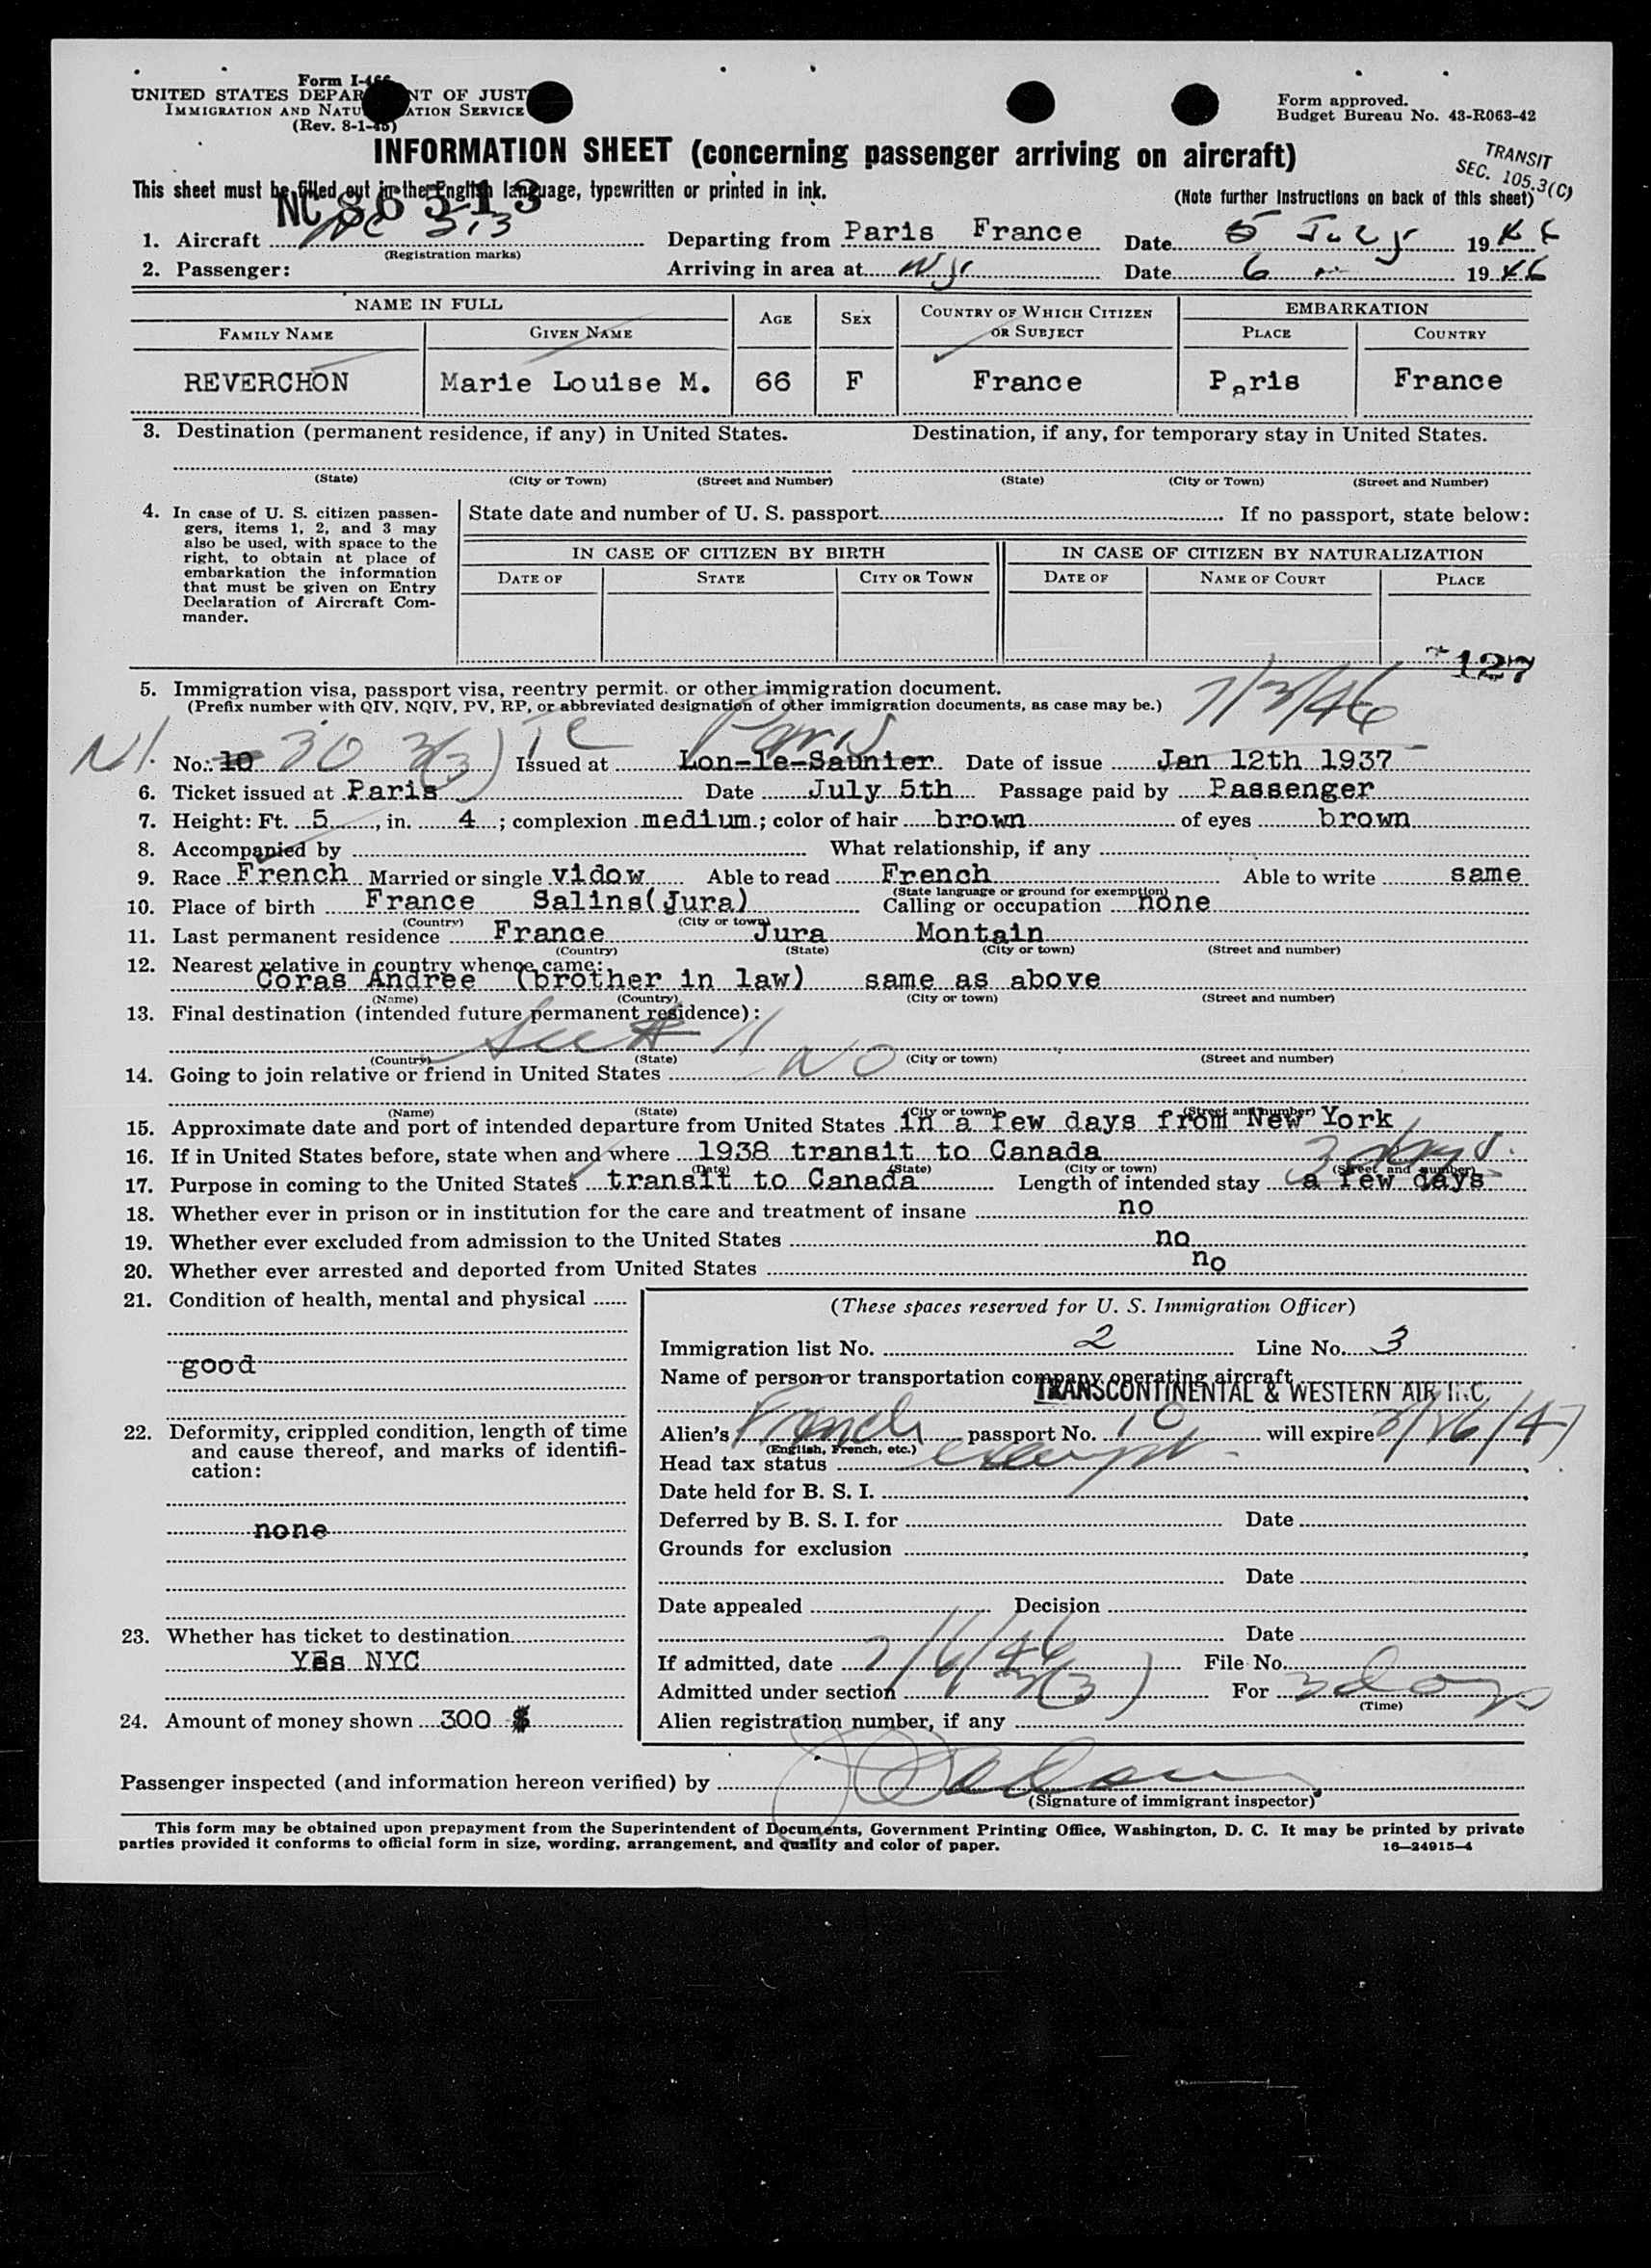 Form I-466
UNITED STATES DEPARTMENT OF JUSTICE
IMMIGRATION AND NATURALIZATION SERVICE
(Rev. 8-1-45)
Form approved.
Budget Bureau No. 43-R063-42
INFORMATION SHEET (concerning passenger arriving on aircraft)
TRANSIT
SEC. 105.3(C)
This sheet must be filled out in the English language, typewritten or printed in ink.
(Note further instructions on back of this sheet)
NC 86513
1. Aircraft NC 513 Departing from Paris France Date 5 July 1946
(Registration marks)
2. Passenger: Arriving in area at NY Date 6 " 1946
NAME IN FULL AGE SEX COUNTRY OF WHICH CITIZEN OR SUBJECT EMBARKATION
FAMILY NAME GIVEN NAME PLACE COUNTRY
REVERCHON Marie Louise M. 66 F France Paris France
3. Destination (permanent residence, if any) in United States. Destination, if any, for temporary stay in United States.
(State) (City or Town) (Street and Number) (State) (City or Town) (Street and Number)
4. In case of U. S. citizen passen-
gers, items 1, 2, and 3 may
also be used, with space to the
right, to obtain at place of
embarkation the information
that must be given on Entry
Declaration of Aircraft Com-
mander.
State date and number of U. S. passport If no passport, state below:
IN CASE OF CITIZEN BY BIRTH IN CASE OF CITIZEN BY NATURALIZATION
DATE OF STATE CITY OR TOWN DATE OF NAME OF COURT PLACE
127
5. Immigration visa, passport visa, reentry permit. or other immigration document.
(Prefix number with QIV, NQIV, PV, RP, or abbreviated designation of other immigration documents, as case may be.)
7/3/46
NI. 30 3(3) Tc Paris
No. 10 Issued at Lon-le-Saunier Date of issue Jan 12th 1937
6. Ticket issued at Paris Date July 5th Passage paid by Passenger
7. Height: Ft. 5, in. 4; complexion medium; color of hair brown of eyes brown
8. Accompanied by What relationship, if any
9. Race French Married or single vidow Able to read French Able to write same
(State language or ground for exemption)
10. Place of birth France Salins(Jura) Calling or occupation none
(Country) (City or town)
11. Last permanent residence France Jura Montain
(Country) (State) (City or town) (Street and number)
12. Nearest relative in country whence came:
Coras Andree (brother in law) same as above
(Name) (Country) (City or town) (Street and number)
13. Final destination (intended future permanent residence):
See # 11
(Country) (State) (City or town) (Street and number)
14. Going to join relative or friend in United States NO
(Name) (State) (City or town) (Street and number)
15. Approximate date and port of intended departure from United States in a few days from New York
16. If in United States before, state when and where 1938 transit to Canada
(Date) (State) (City or town) (Street and number)
3 days.
17. Purpose in coming to the United States transit to Canada Length of intended stay a few days
18. Whether ever in prison or in institution for the care and treatment of insane no
19. Whether ever excluded from admission to the United States no
20. Whether ever arrested and deported from United States no
21. Condition of health, mental and physical
good
22. Deformity, crippled condition, length of time
and cause thereof, and marks of identifi-
cation:
none
23. Whether has ticket to destination
Yes NYC
24. Amount of money shown 300 $
(These spaces reserved for U. S. Immigration Officer)
Immigration list No. 2 Line No. 3
Name of person or transportation company operating aircraft
TRANSCONTINENTAL & WESTERN AIR INC.
Alien's French passport No. 10 will expire 3/26/47
(English, French, etc.)
Head tax status exempt
Date held for B. S. I.
Deferred by B. S. I. for Date
Grounds for exclusion
Date
Date appealed Decision
Date
If admitted, date 7/6/46 File No.
Admitted under section 3(3) For 3 days
(Time)
Alien registration number, if any
Passenger inspected (and information hereon verified) by
(Signature of immigrant inspector)
This form may be obtained upon prepayment from the Superintendent of Documents, Government Printing Office, Washington, D. C. It may be printed by private
parties provided it conforms to official form in size, wording, arrangement, and quality and color of paper. 16—24915-4